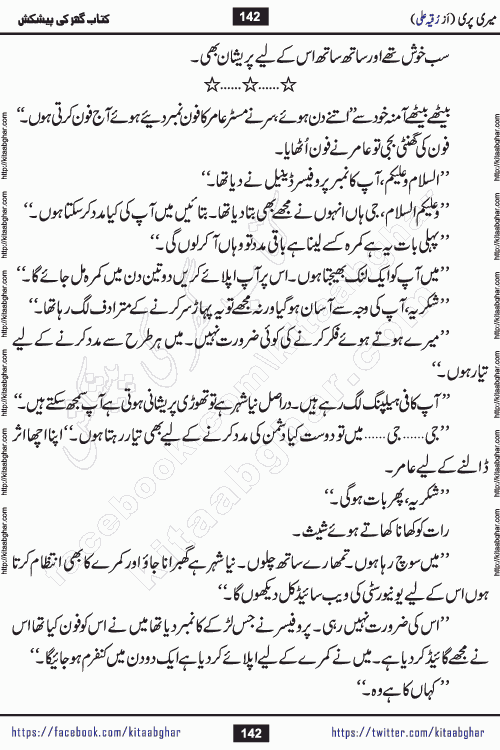 میری پری (از رُقیہ علی) 142 کتاب گھر کی پیشکش
سب خوش تھے اور ساتھ ساتھ اس کے لیے پریشان بھی۔
☆......☆......☆
بیٹھے بیٹھے آمنہ خود سے ’’اتنے دن ہوئے، سر نے مسٹر عامر کا فون نمبر دیئے ہوئے آج فون کرتی ہوں۔‘‘
فون کی گھنٹی بجی تو عامر نے فون اُٹھایا۔
’’السلام و علیکم، آپ کا نمبر پروفیسر ڈینیل نے دیا تھا۔‘‘
’’وعلیکم السلام، جی ہاں انہوں نے مجھے بھی بتا دیا تھا۔ بتائیں میں آپ کی کیا مدد کر سکتا ہوں۔‘‘
’’پہلی بات یہ ہے کمرہ کسے لینا ہے باقی مدد تو وہاں آ کر لوں گی۔‘‘
’’میں آپ کو ایک لنک بھیجتا ہوں۔ اس پر آپ اپلائے کریں دو تین دن میں کمرہ مل جائے گا۔‘‘
’’شکریہ، آپ کی وجہ سے آسان ہو گیا ورنہ مجھے تو یہ پہاڑ سر کرنے کے مترادف لگ رہا تھا۔‘‘
’’میرے ہوتے ہوئے فکر کرنے کی کوئی ضرورت نہیں۔ میں ہر طرح سے مدد کرنے کے لیے
تیار ہوں۔‘‘
’’آپ کافی ہیلپنگ لگ رہے ہیں۔ دراصل نیا شہر ہے تو تھوڑی پریشانی ہوتی ہے آپ سمجھ سکتے ہیں۔‘‘
’’جی...... جی...... میں تو دوست کیا دشمن کی مدد کرنے کے لیے بھی تیار رہتا ہوں۔‘‘ اپنا اچھا اثر
ڈالنے کے لیے عامر۔
’’شکریہ، پھر بات ہو گی۔‘‘
رات کو کھانا کھاتے ہوئے شیث۔
’’میں سوچ رہا ہوں۔ تمھارے ساتھ چلوں۔ نیا شہر ہے گھبرا نا جاؤ اور کمرے کا بھی انتظام کرتا
ہوں اس کے لیے یونیورسٹی کی ویب سائیڈ کل دیکھوں گا۔‘‘
’’اس کی ضرورت نہیں رہی۔ پروفیسر نے جس لڑکے کا نمبر دیا تھا میں نے اس کو فون کیا تھا اس
نے مجھے گائیڈ کر دیا ہے۔ میں نے کمرے کے لیے اپلائے کر دیا ہے ایک دو دن میں کنفرم ہو جائیگا۔‘‘
’’کہاں کا ہے وہ۔‘‘
https://facebook.com/kitaabghar 142 https://twitter.com/kitaabghar
http://kitaabghar.com http://kitaabghar.com http://kitaabghar.com http://kitaabghar.com
facebook.com/kitaabghar
kitaabghar.com